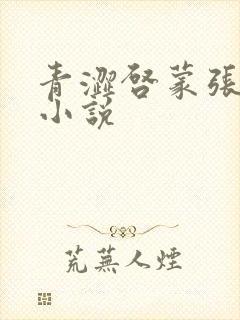 青澀啓蒙張
小説
荒蕪人煙